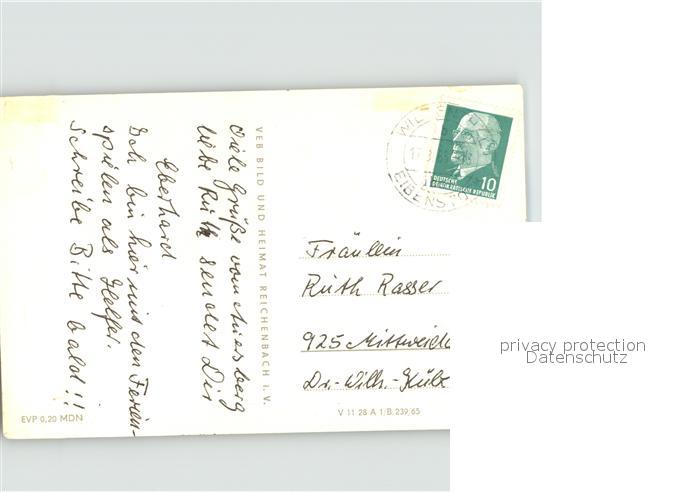 Viele Grüße vom Auersberg
liebe Ruth sendet Dir
Eberhard
Ich bin hier mit den Ferien-
spielen als Helfer.
Schreibe Bitte bald!!
VEB BILD UND HEIMAT REICHENBACH I. V.
EVP 0,20 MDN
V 11 28 A 1/B.239/65
EIBENSTO
DEUTSCHE
DEMOKRATISCHE REPUBLIK
10
Fräulein
Ruth Rasser
925 Mittweida
Dr.-Wilh.-Külz
privacy protection
Datenschutz